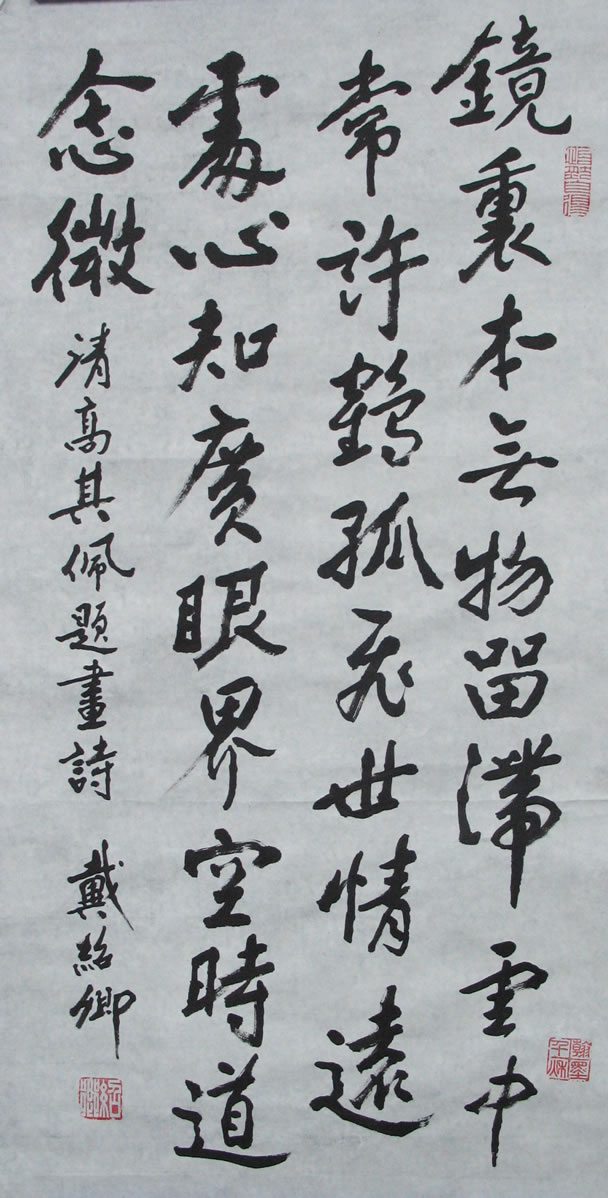 鏡裏本無物留滯雲中
常許鶴孤飛世情遠
處心知廣眼界空時道
念微 清高其佩題畫詩 戴紹卿
翰墨千秋
紹卿